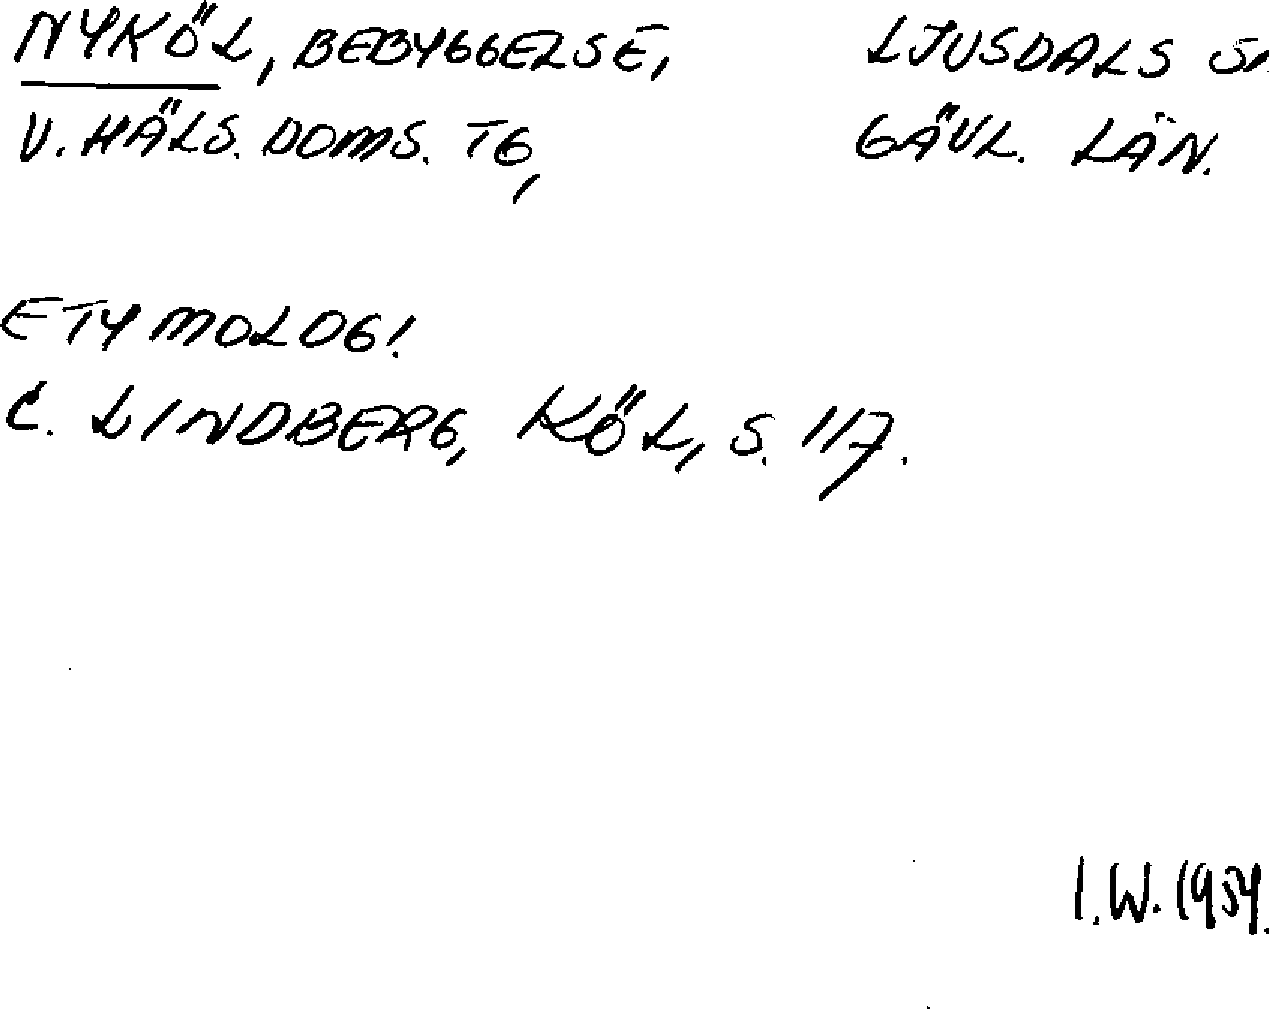 NYKÖL, BEBYGGELSE, LJUSDALS
V. HÄLS. DOMS. TG, GÄVL. LÄN.
ETYMOLOG!
C. LINDBERG, KÖL, S. 117.
I.W. 1954.